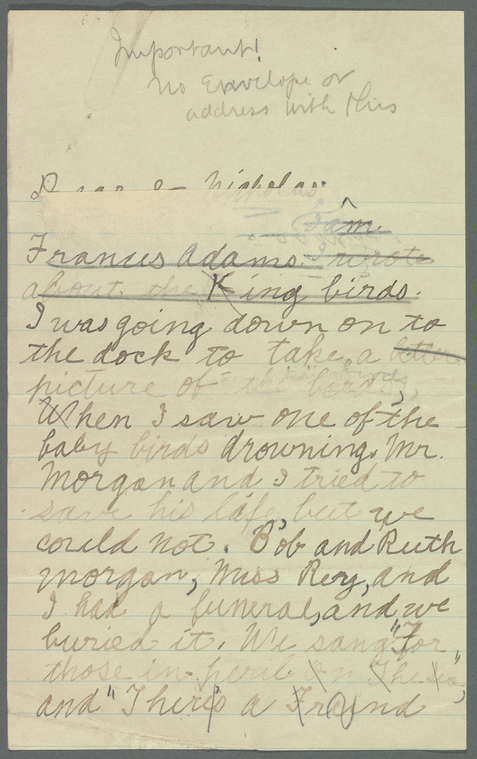 Important!
No Envelope or
address with this
Dear St Nicholas
I am
Francis Adams. I wrote
about the King birds.
I was going down on to
the dock to take a better
picture of the birds,
When I saw one of the
baby birds drowning. Mr.
Morgan and I tried to
save his life but we
could not. Bob and Ruth
Morgan, Miss Rey, and
I had a funeral, and we
buried it. We sang "For
those in peril on The sea",
and "There's a Friend